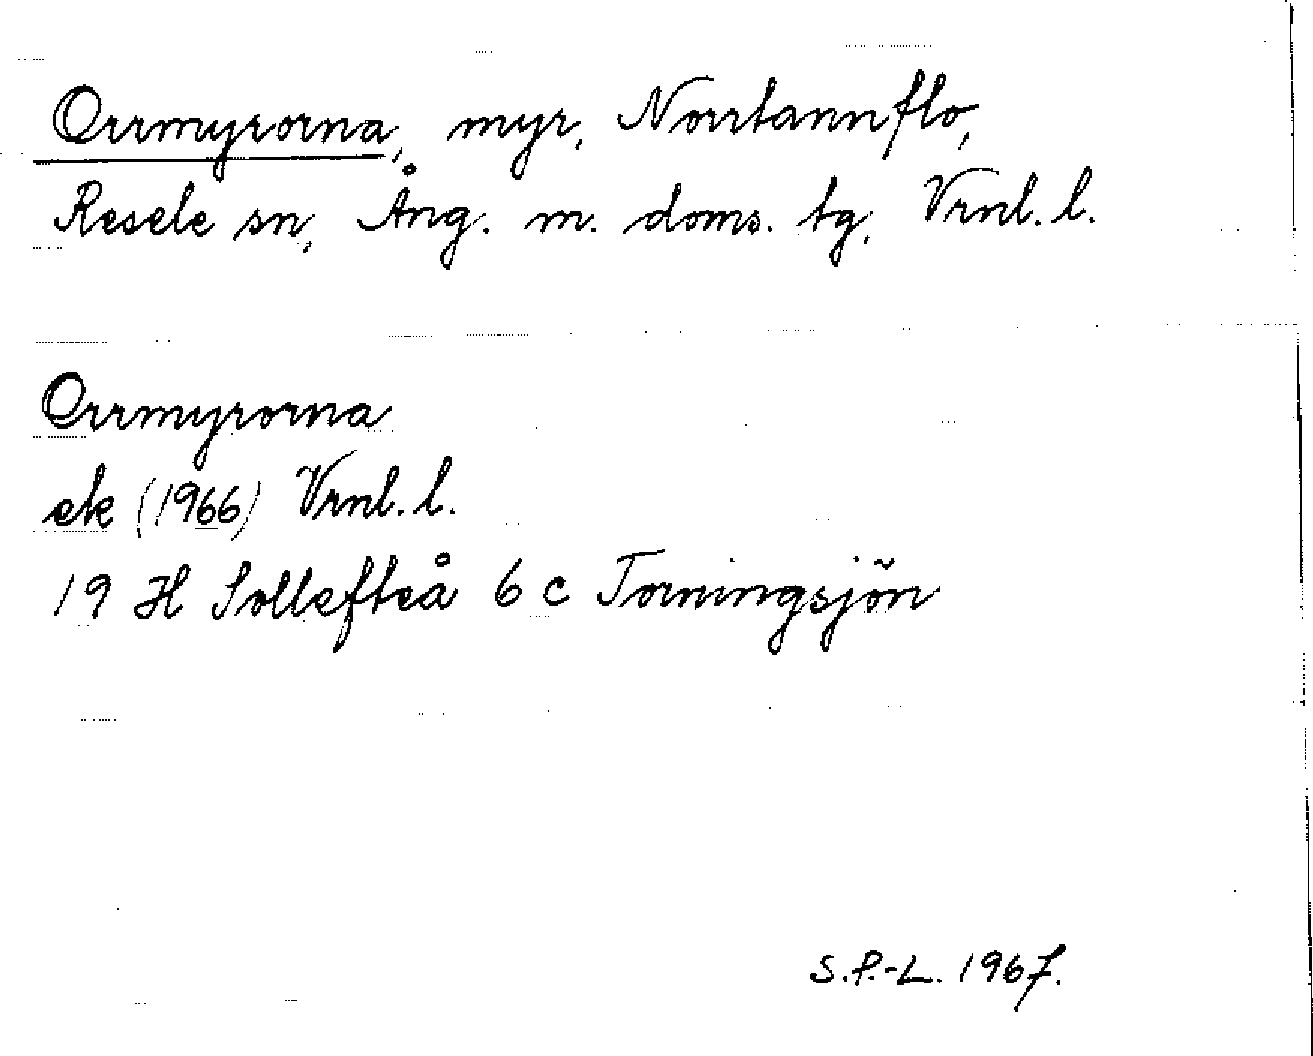 Orrmyrorna, myr, Norrtannflo,
Resele sn, Ång. m. doms. tg, Vrnl. l.
Orrmyrorna
ek (1966) Vrnl. l.
19 H Sollefteå 6 c Torningsjön
S.P.-L. 1967.